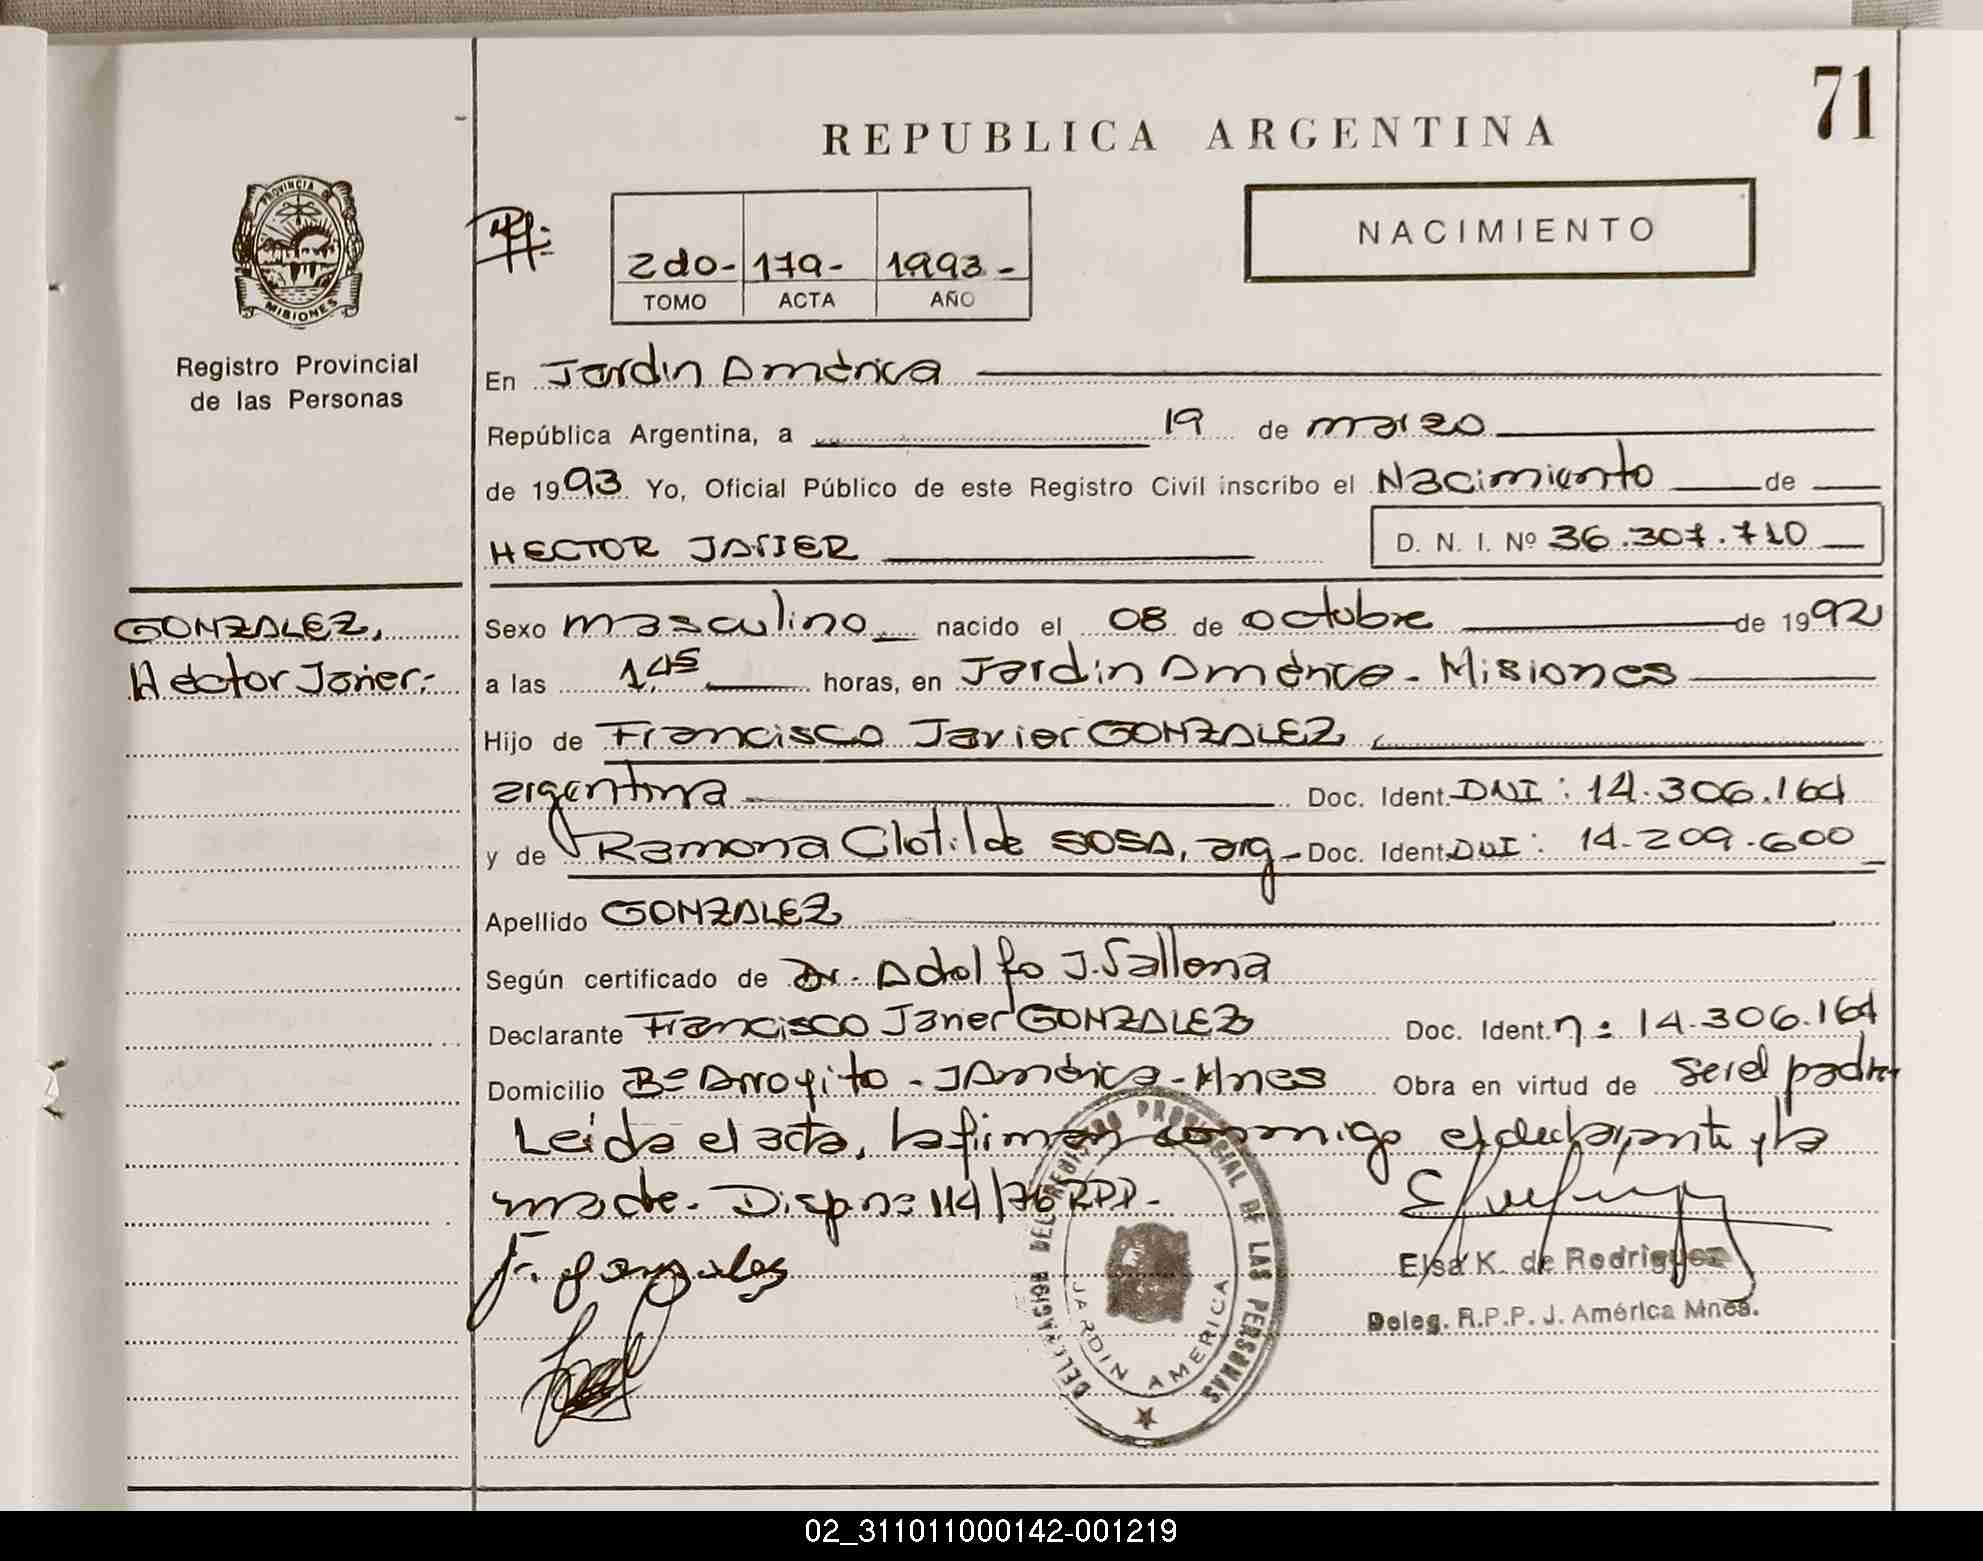 71
REPUBLICA ARGENTINA
PROVINCIA DE
MISIONES
NACIMIENTO
2do- 179- 1993-
TOMO ACTA AÑO
Registro Provincial
de las Personas
En Jardin América
República Argentina, a 19 de marzo
de 1993 Yo, Oficial Público de este Registro Civil inscribo el Nacimiento de
HECTOR JAVIER D. N. I. Nº 36.307.710
GONZALEZ,
Héctor Javier.-
Sexo masculino nacido el 08 de octubre de 1992
a las 1,45 horas, en Jardin América - Misiones
Hijo de Francisco Javier GONZALEZ,
argentina Doc. Ident. DNI: 14.306.164
y de Ramona Clotilde SOSA, arg- Doc. Ident. DNI: 14-209.600
Apellido GONZALEZ
Según certificado de Dr. Adolfo J.
Declarante Francisco Javier GONZALEZ Doc. Ident. nº 14.306.164
Domicilio Bº Arroyito - J América - Mnes Obra en virtud de ser el padre
Leida el acta, la firman conmigo el declarante y la
madre. Disp nº 114/76 RPP-
F. Gonzales
DELEGACION DEL REGISTRO PROVINCIAL DE LAS PERSONAS
JARDIN AMERICA
Elsa K. de Rodriguez
Deleg. R.P.P. J. América Mnes.
02_311011000142-001219